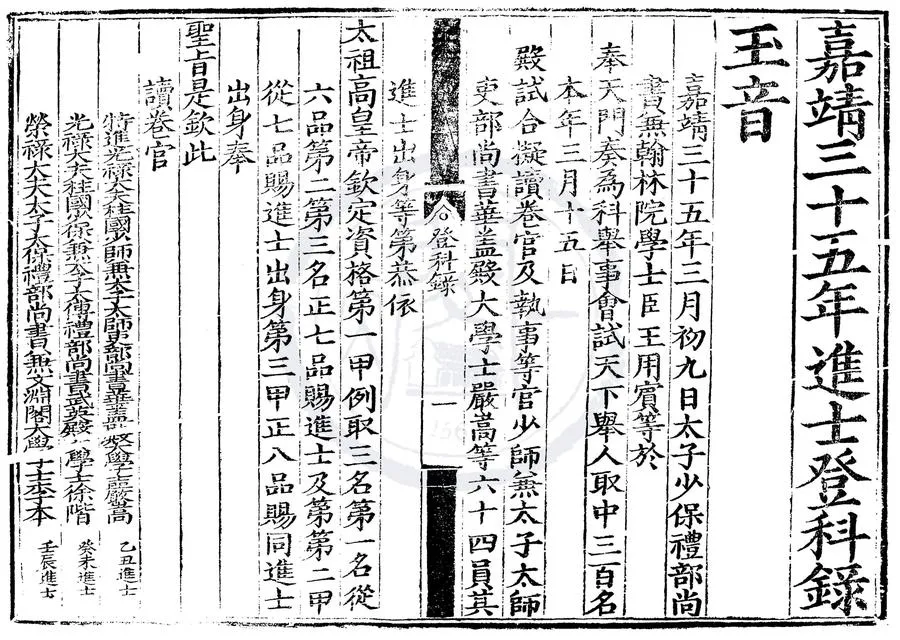 嘉靖三十五年進士登科錄
玉音
嘉靖三十五年三月初九日太子少保禮部尚
書兼翰林院學士臣王用賓等於
奉天門奏爲科舉事會試天下舉人取中三百名
本年三月十五日
殿試合擬讀卷官及執事等官少師兼太子太師
吏部尚書華盖殿大學士嚴嵩等六十四員其
登科錄
一
進士出身等第恭依
太祖高皇帝欽定資格第一甲例取三名第一名從
六品第二第三名正七品賜進士及第第二甲
從七品賜進士出身第三甲正八品賜同進士
出身奉
聖旨是欽此
讀卷官
特進光祿大夫柱國少師兼太子太師吏部尚書華盖殿大學士嚴嵩 乙丑進士
光祿大夫柱國少保兼太子太傅禮部尚書武英殿大學士徐階 癸未進士
榮祿大夫太子太保禮部尚書兼文淵閣大學士李本 壬辰進士